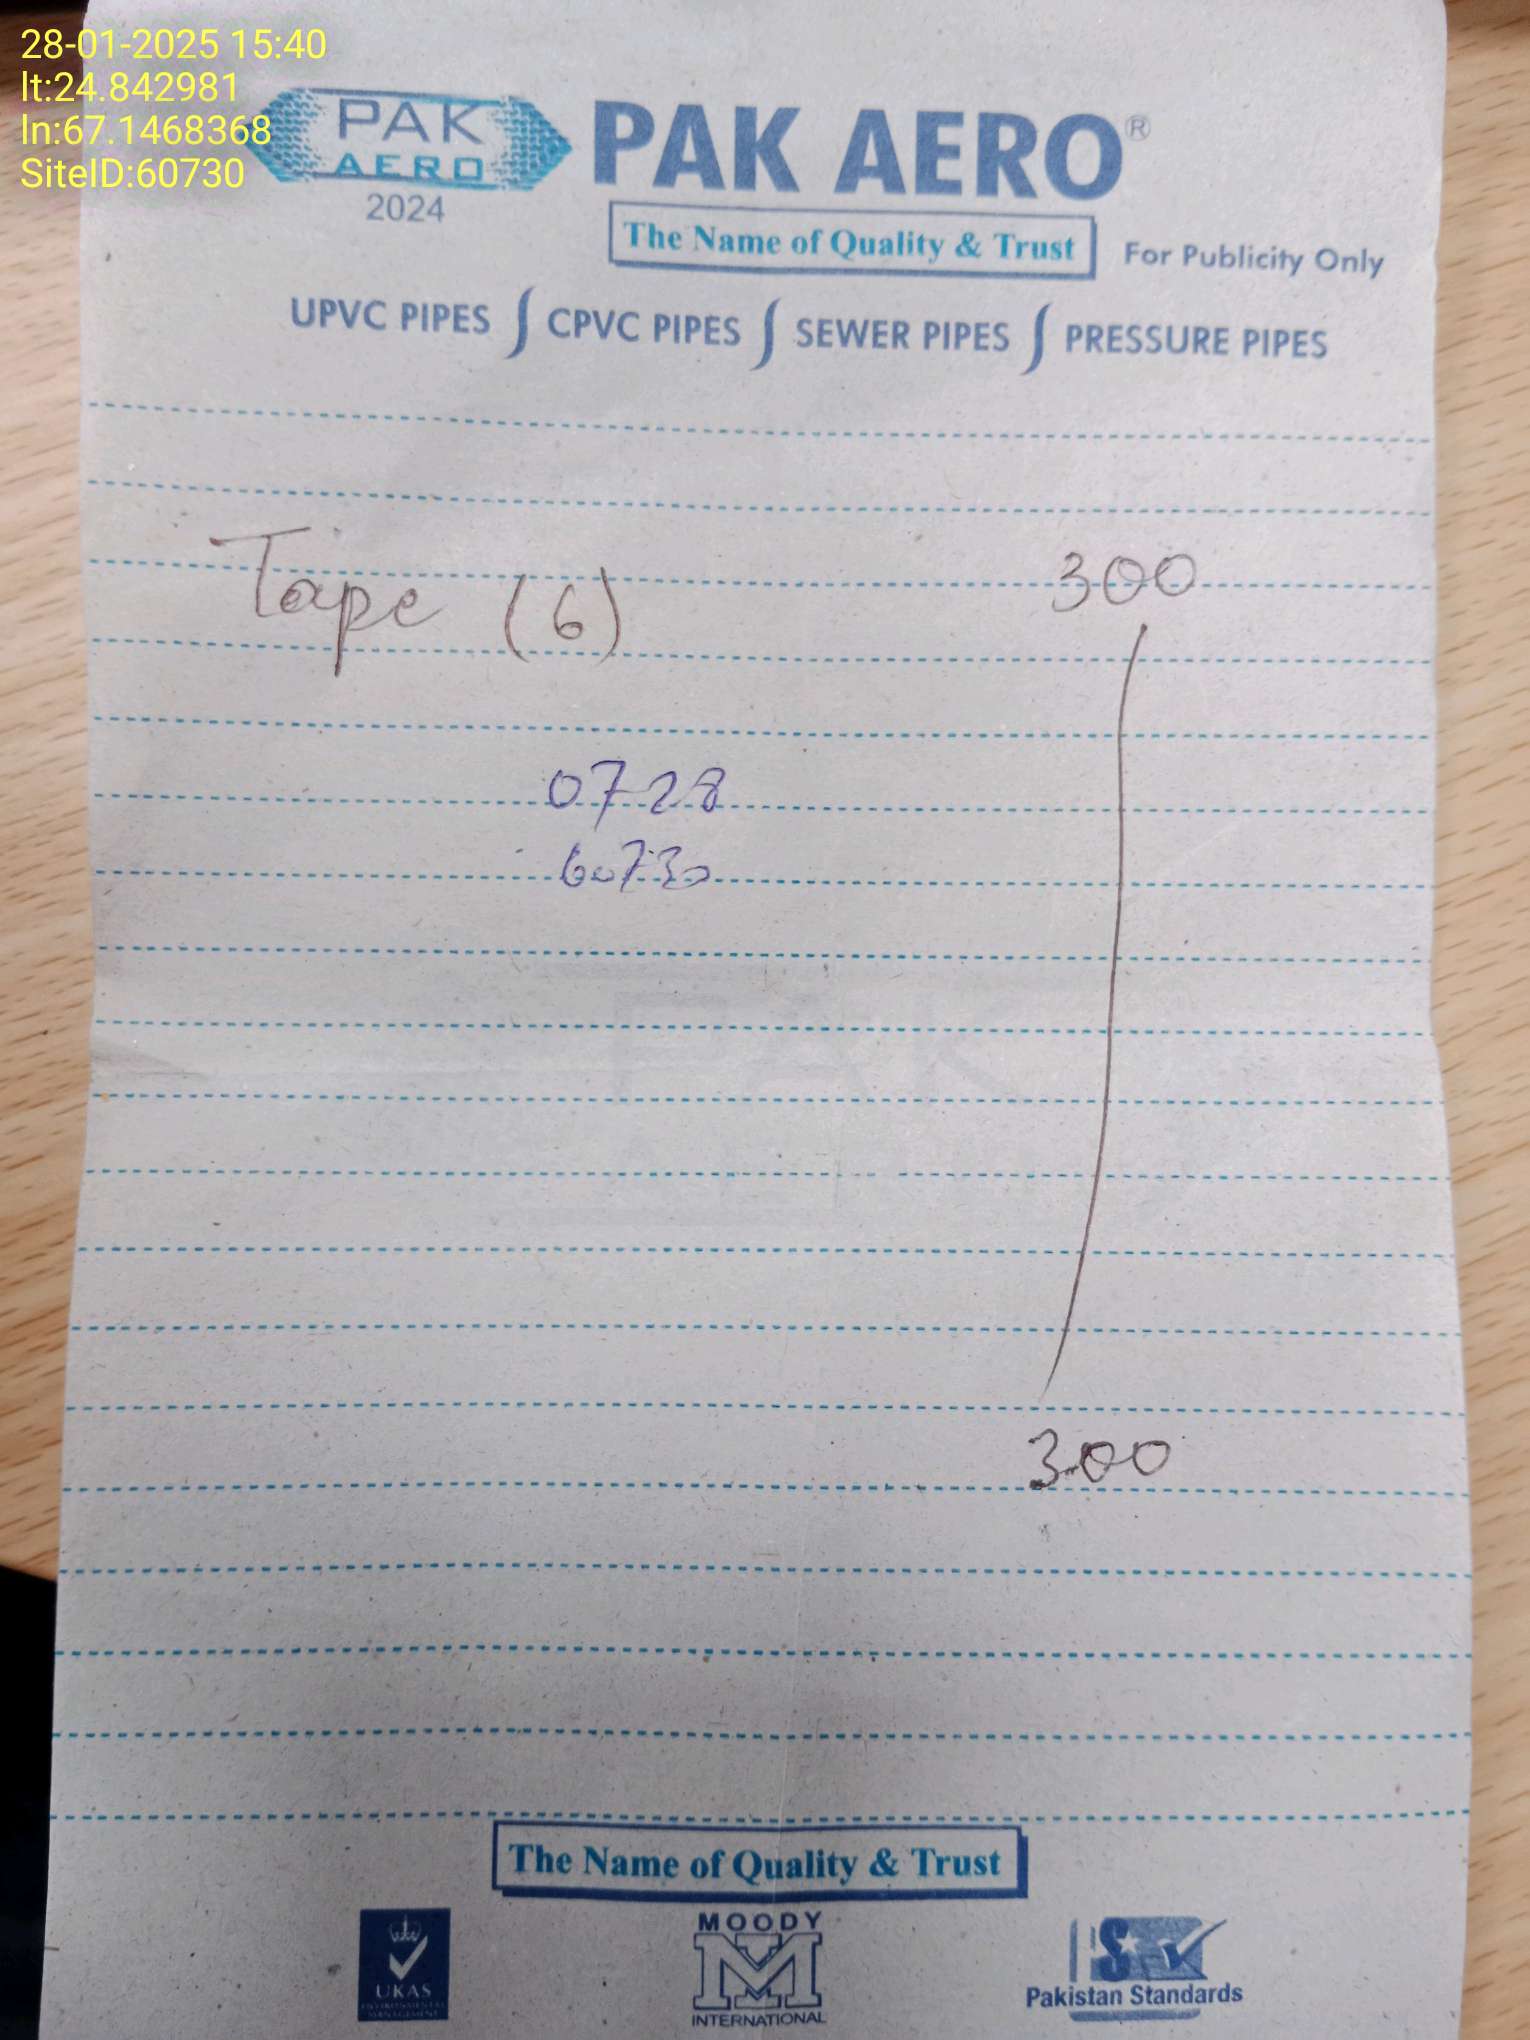 28-01-2025 15:40
lt:24.842981
ln:67.1468368
SiteID:60730
PAK
AERO
2024
PAK AERO®
The Name of Quality & Trust
For Publicity Only
UPVC PIPES ∫ CPVC PIPES ∫ SEWER PIPES ∫ PRESSURE PIPES
Tape (6) 300
0728
60730
PAK
300
The Name of Quality & Trust
UKAS
ENVIRONMENTAL
MANAGEMENT
MOODY
M
INTERNATIONAL
Pakistan Standards